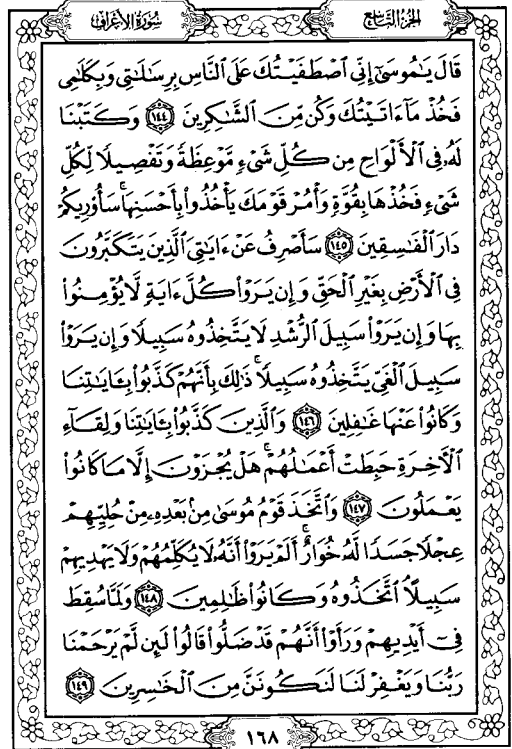 سُورَةُ الأَعْرَافِ
الجُزْءُ التَّاسِعُ
قَالَ يَٰمُوسَىٰٓ إِنِّي ٱصْطَفَيْتُكَ عَلَى ٱلنَّاسِ بِرِسَٰلَٰتِي وَبِكَلَٰمِي
فَخُذْ مَآ ءَاتَيْتُكَ وَكُن مِّنَ ٱلشَّٰكِرِينَ ١٤٤ وَكَتَبْنَا
لَهُۥ فِي ٱلْأَلْوَاحِ مِن كُلِّ شَيْءٍ مَّوْعِظَةً وَتَفْصِيلًا لِّكُلِّ
شَيْءٍ فَخُذْهَا بِقُوَّةٍ وَأْمُرْ قَوْمَكَ يَأْخُذُوا۟ بِأَحْسَنِهَا ۚ سَأُو۟رِيكُمْ
دَارَ ٱلْفَٰسِقِينَ ١٤٥ سَأَصْرِفُ عَنْ ءَايَٰتِيَ ٱلَّذِينَ يَتَكَبَّرُونَ
فِي ٱلْأَرْضِ بِغَيْرِ ٱلْحَقِّ وَإِن يَرَوْا۟ كُلَّ ءَايَةٍ لَّا يُؤْمِنُوا۟
بِهَا وَإِن يَرَوْا۟ سَبِيلَ ٱلرُّشْدِ لَا يَتَّخِذُوهُ سَبِيلًا وَإِن يَرَوْا۟
سَبِيلَ ٱلْغَيِّ يَتَّخِذُوهُ سَبِيلًا ۚ ذَٰلِكَ بِأَنَّهُمْ كَذَّبُوا۟ بِـَٔايَٰتِنَا
وَكَانُوا۟ عَنْهَا غَٰفِلِينَ ١٤٦ وَٱلَّذِينَ كَذَّبُوا۟ بِـَٔايَٰتِنَا وَلِقَآءِ
ٱلْءَاخِرَةِ حَبِطَتْ أَعْمَٰلُهُمْ ۚ هَلْ يُجْزَوْنَ إِلَّا مَا كَانُوا۟
يَعْمَلُونَ ١٤٧ وَٱتَّخَذَ قَوْمُ مُوسَىٰ مِنۢ بَعْدِهِۦ مِنْ حُلِيِّهِمْ
عِجْلًا جَسَدًا لَّهُۥ خُوَارٌ ۚ أَلَمْ يَرَوْا۟ أَنَّهُۥ لَا يُكَلِّمُهُمْ وَلَا يَهْدِيهِمْ
سَبِيلًا ۘ ٱتَّخَذُوهُ وَكَانُوا۟ ظَٰلِمِينَ ١٤٨ وَلَمَّا سُقِطَ
فِيٓ أَيْدِيهِمْ وَرَأَوْا۟ أَنَّهُمْ قَدْ ضَلُّوا۟ قَالُوا۟ لَئِن لَّمْ يَرْحَمْنَا
رَبُّنَا وَيَغْفِرْ لَنَا لَنَكُونَنَّ مِنَ ٱلْخَٰسِرِينَ ١٤٩
١٦٨